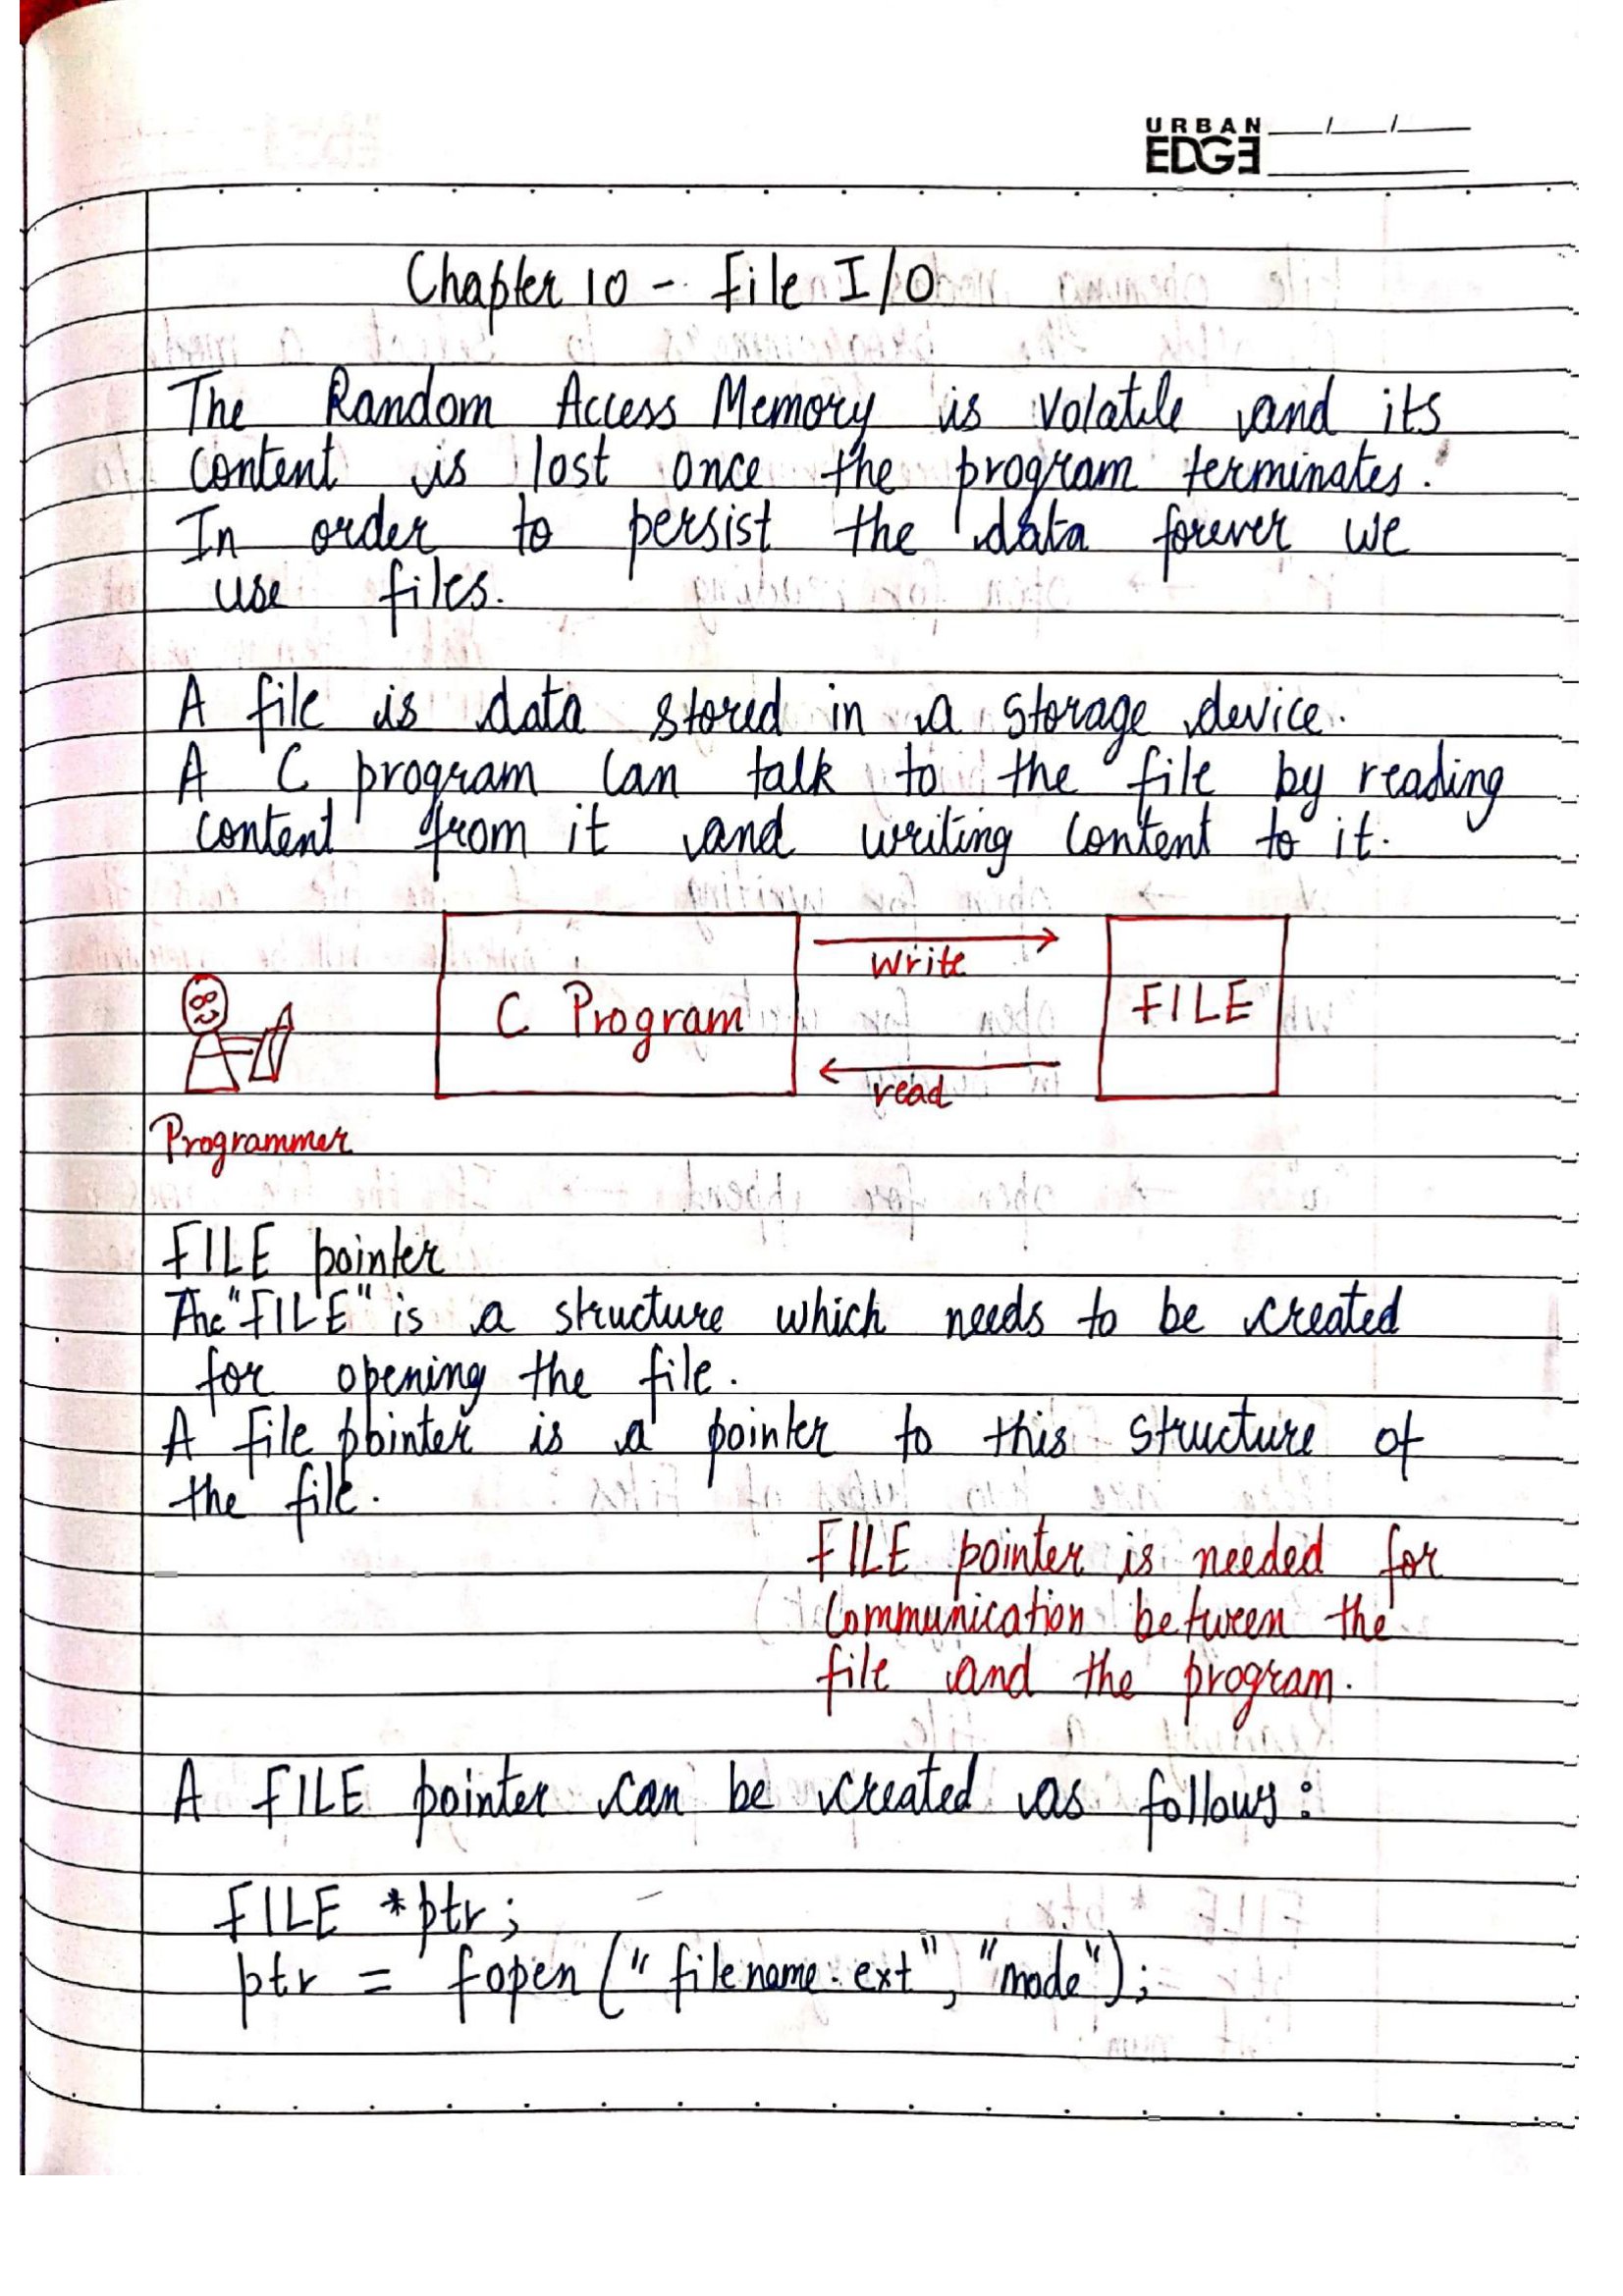 URBAN
EDGE
Chapter 10 - File I/O
The Random Access Memory is volatile and its
content is lost once the program terminates.
In order to persist the data forever we
use files.
A file is data stored in a storage device.
A C program can talk to the file by reading
content from it and writing content to it.
C Program
write
read
FILE
Programmer
FILE pointer
The "FILE" is a structure which needs to be created
for opening the file.
A file pointer is a pointer to this structure of
the file.
FILE pointer is needed for
communication between the
file and the program.
A FILE pointer can be created as follows:
FILE *ptr;
ptr = fopen("filename.ext", "mode");